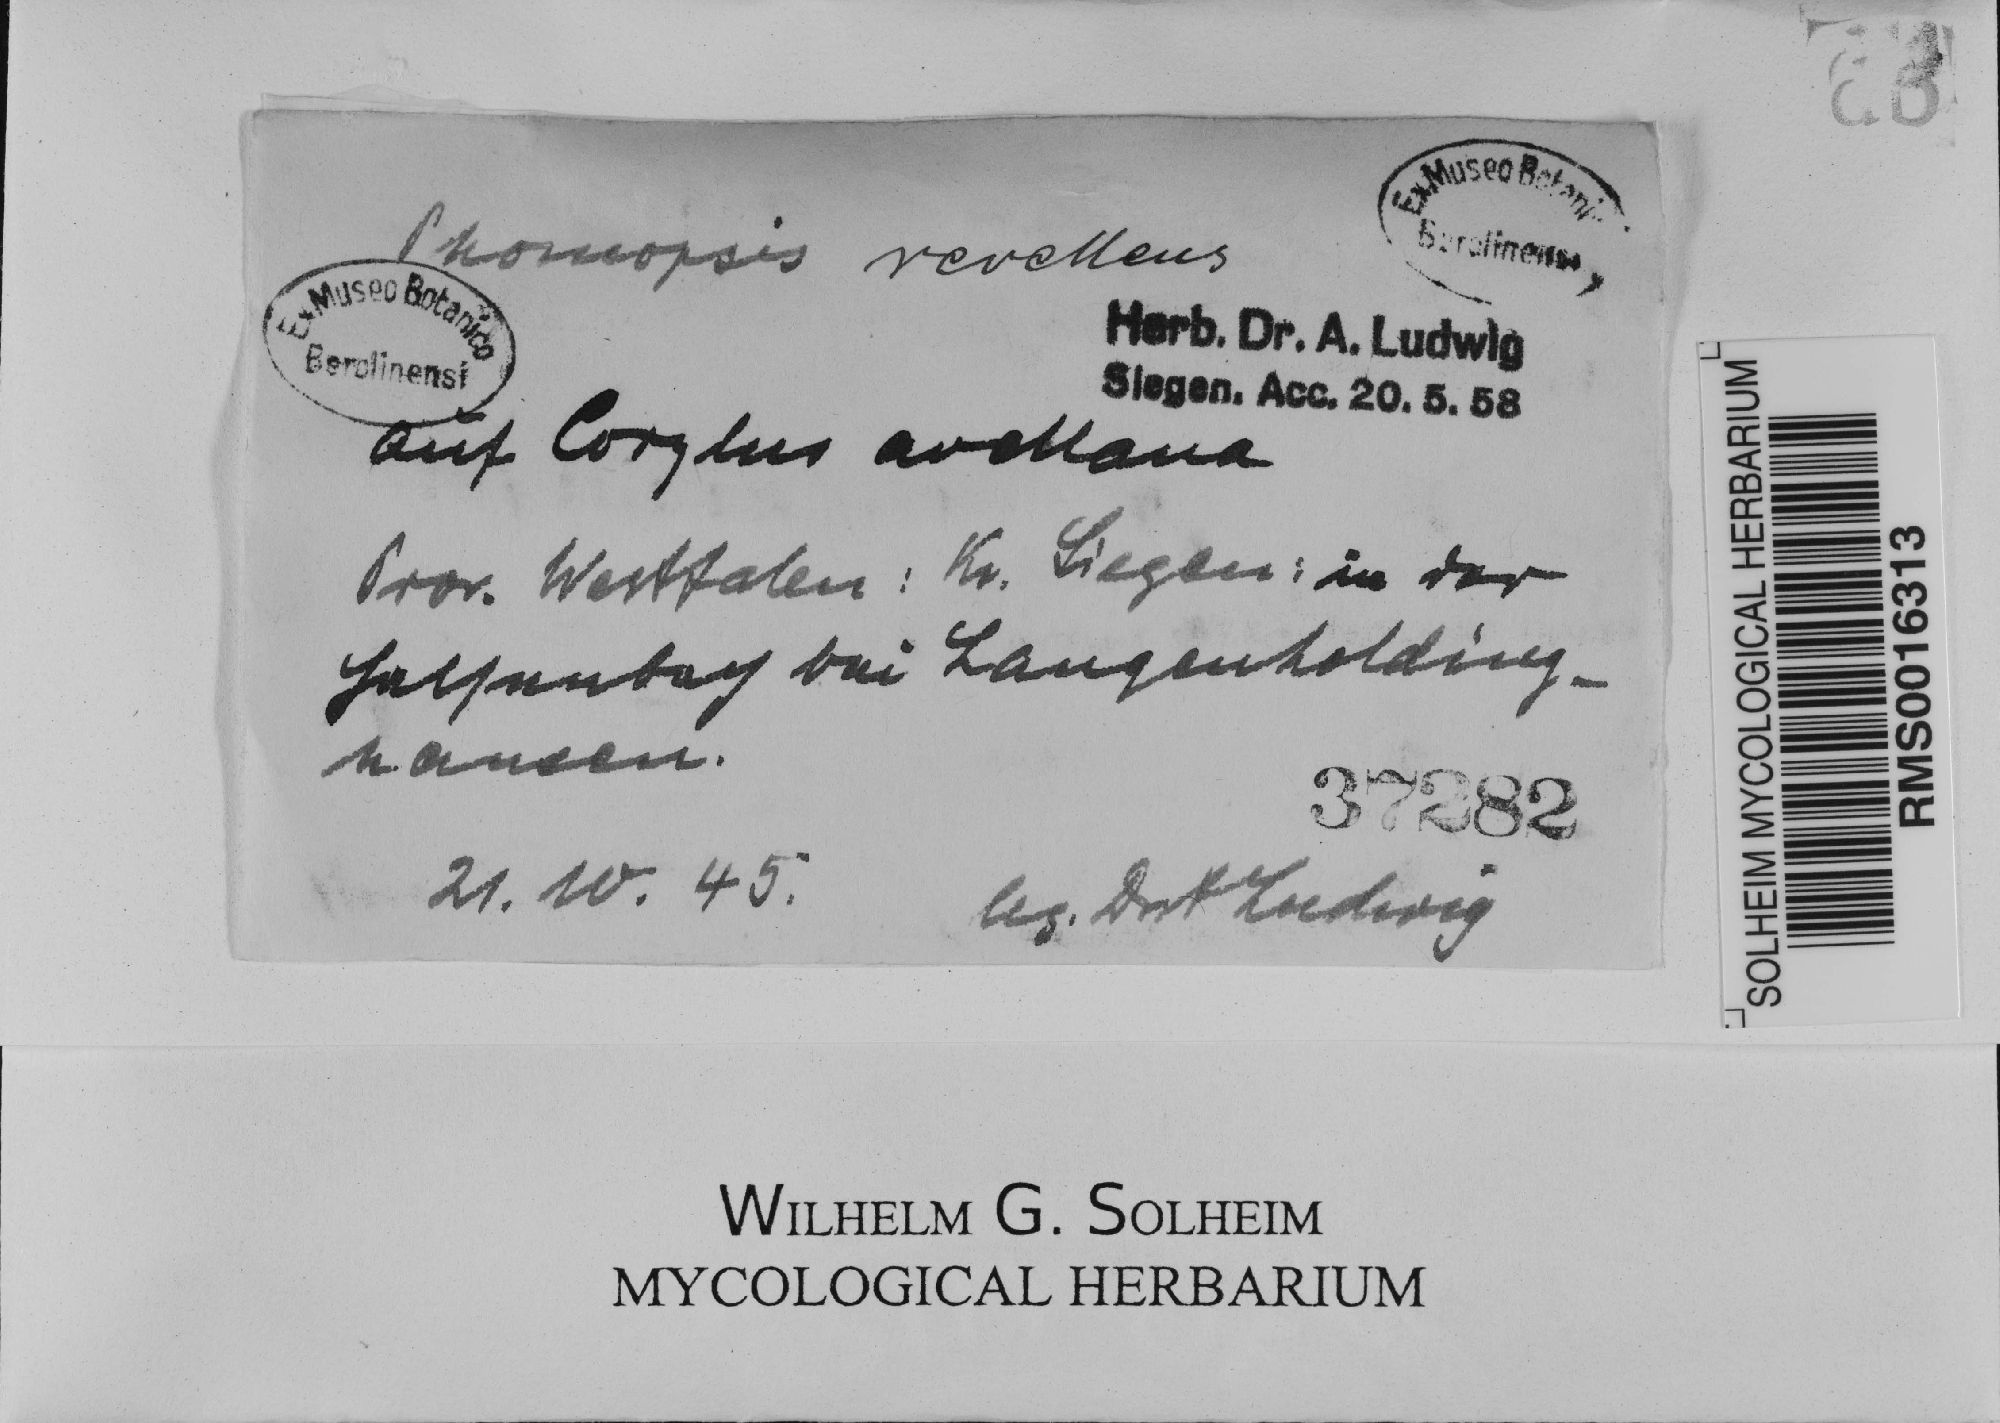 Phomopsis revellens
Ex Museo Botanico
Berolinensi
Ex Museo Botani
Berolinensi
Herb. Dr. A. Ludwig
Siegen. Acc. 20. 5. 58
auf Corylus avellana
Prov. Westfalen: Kr. Siegen: in der
bei Langenholding-
hausen.
37282
21. 10. 45.
leg. Ludwig
SOLHEIM MYCOLOGICAL HERBARIUM
RMS0016313
WILHELM G. SOLHEIM
MYCOLOGICAL HERBARIUM